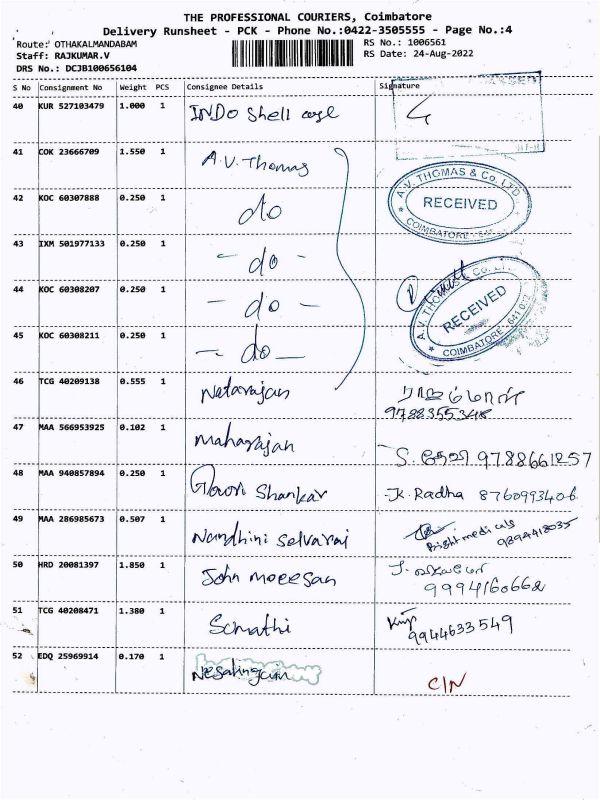 THE PROFESSIONAL COURIERS, Coimbatore
Delivery Runsheet - PCK - Phone No.:0422-3505555 - Page No.:4
Route: OTHAKALMANDABAM
RS No.: 1006561
Staff: RAJKUMAR.V
RS Date: 24-Aug-2022
DRS No.: DCJB100656104
S No Consignment No Weight PCS Consignee Details Signature
40 KUR 527103479 1.000 1 INDO Shell
41 COK 23666709 1.550 1 A.V. Thomas
A.V. THOMAS & Co. LTD
RECEIVED
COIMBATORE
42 KOC 60307888 0.250 1 do
43 IXM 501977133 0.250 1 - do -
44 KOC 60308207 0.250 1 - do -
A.V. THOMAS Co.
RECEIVED
COIMBATORE - 641
45 KOC 60308211 0.250 1 - do -
46 TCG 40209138 0.555 1 Natarajan
47 MAA 566953925 0.102 1 Maharajan
9788661257
48 MAA 940857894 0.250 1 Gowri Shankar K. Radha 8760993406
49 MAA 286985673 0.507 1 Nandhini Selvaraj
Bright medicals
50 HRD 20081397 1.850 1 John
9994160662
51 TCG 40208471 1.380 1 Sumathi
9944633549
52 EDQ 25969914 0.170 1
C/N